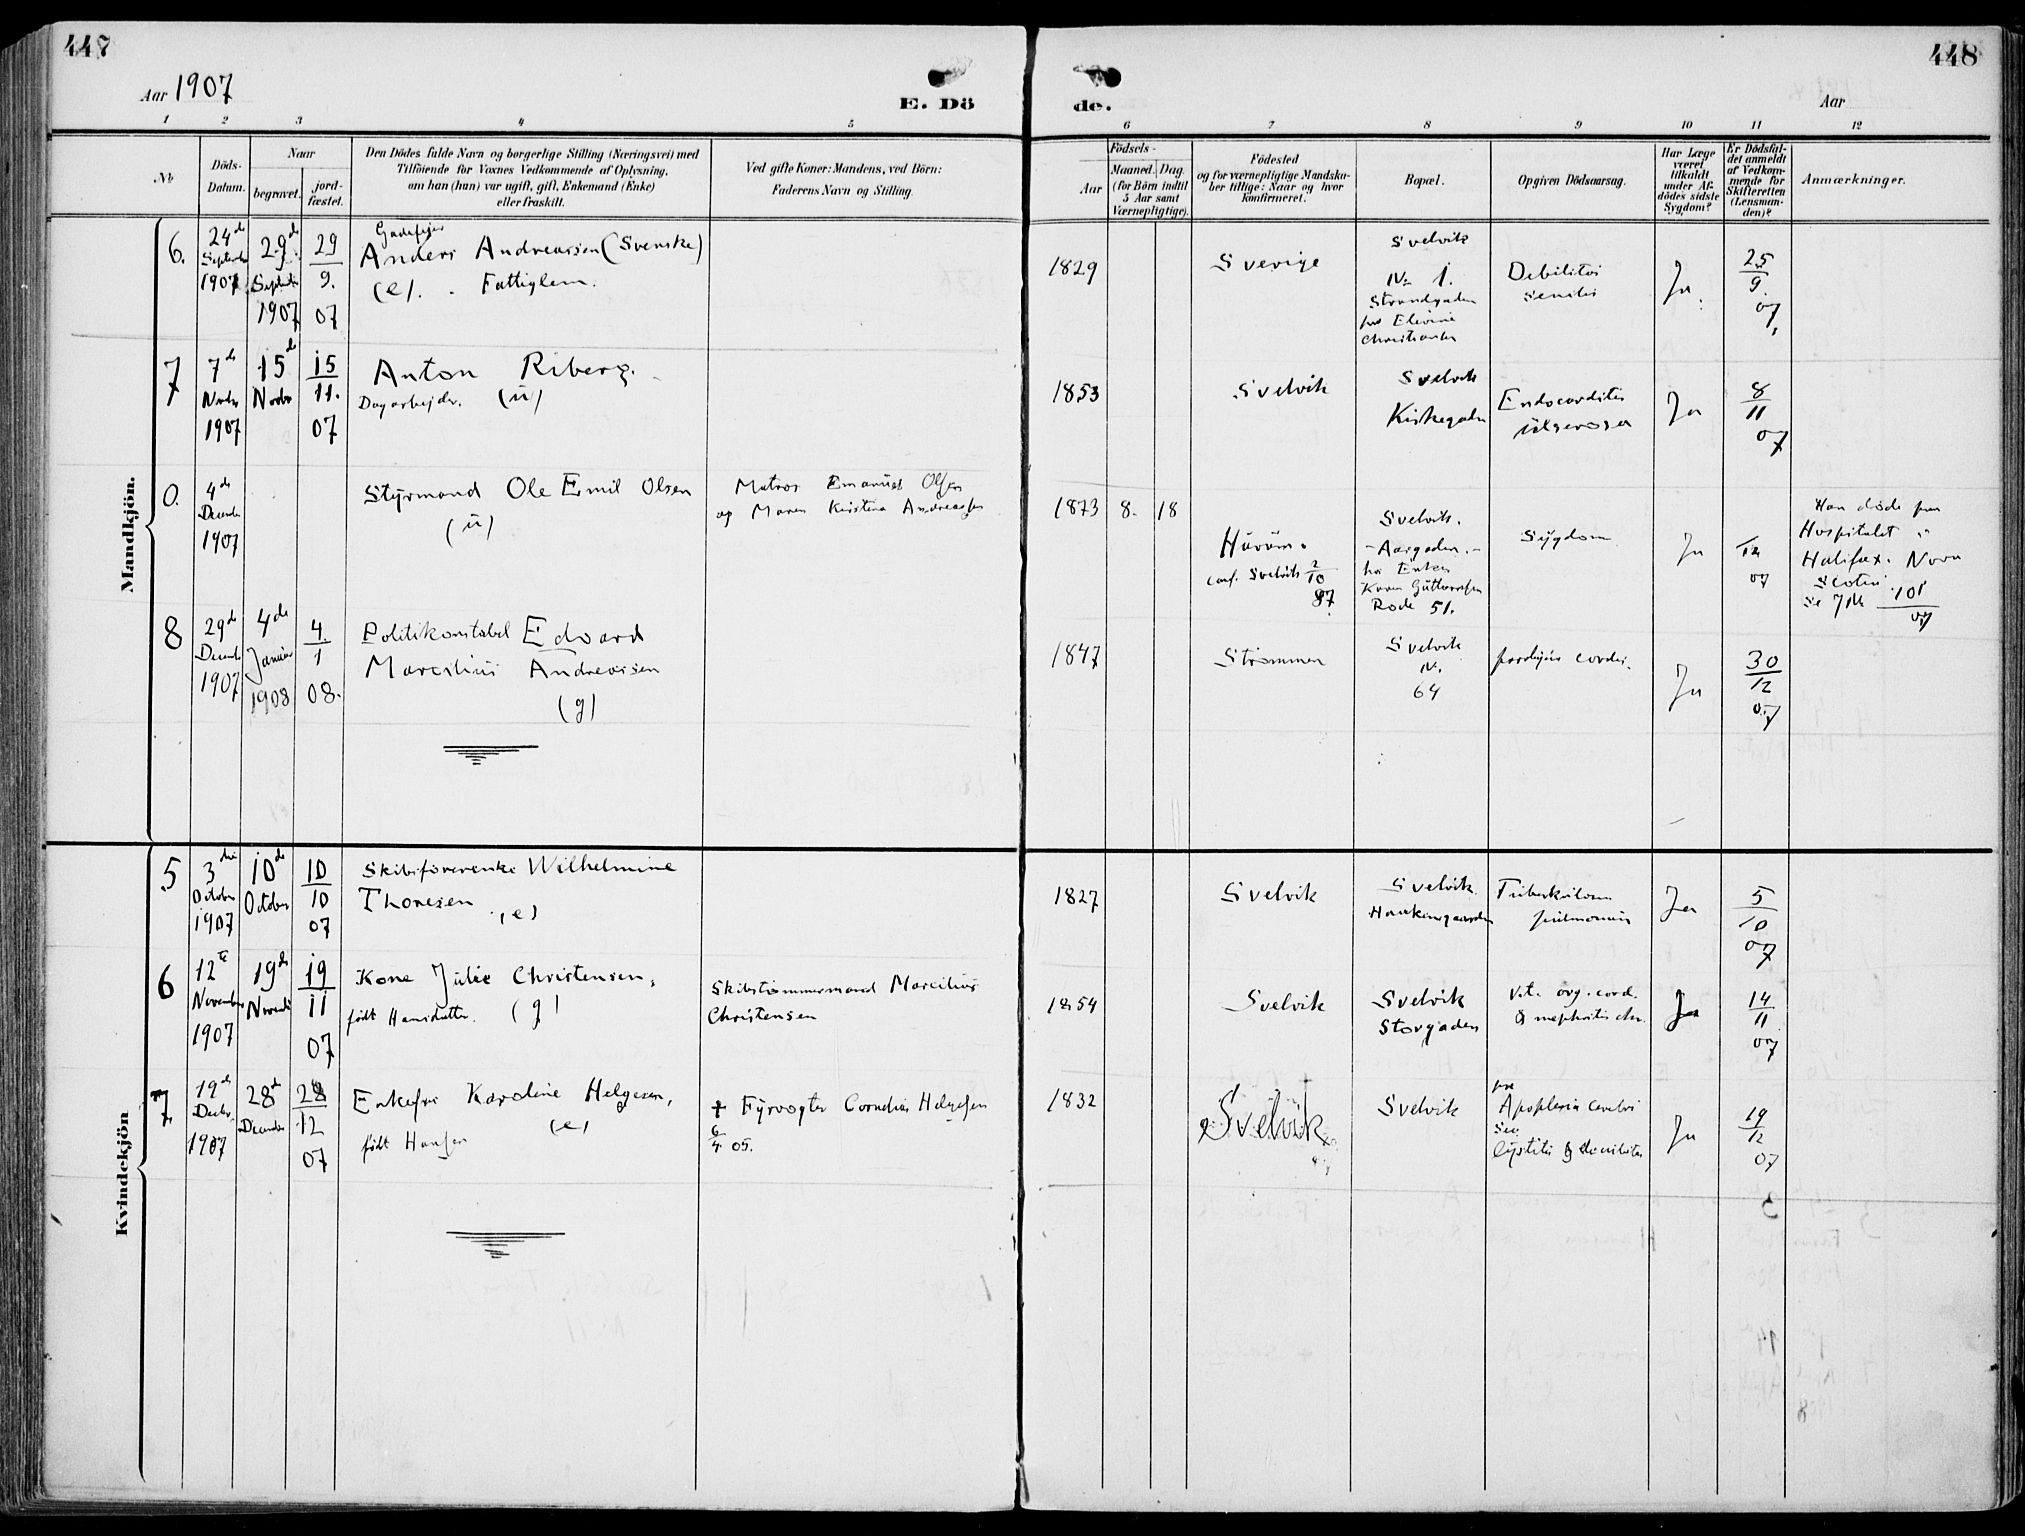 447
Aar 1907
E. Dö
1 2 3 4 5
№
Döds-
Datum.
Naar
begravet.
jord-
fæstet.
Den Dödes fulde Navn og borgerlige Stilling (Næringsvei) med
Tilföiende for Voxnes Vedkommende af Oplysning,
om han (hun) var ugift, gift, Enkemand (Enke)
eller fraskilt.
Ved gifte Koner: Mandens, ved Börn:
Faderens Navn og Stilling.
Mandkjön.
6.
24de
September
1907
29de
1907
29
9.
07
Gadefejer
Anders Andreassen (Svenske)
(e). Fattiglem.
7
7de
Novbr
1907
15de
Novbr
15
11.
07
Anton Riberg.
Dagarbejder. (u)
0.
4de
December
1907
Styrmand Ole Emil Olsen
(u)
Matros Emanuel Olsen
og Maren Kristina Andreassen
8
29de
Decemb
1907
4de
Januar
1908
4.
1
08.
Politikonstabel Edvard
Marcilius Andreassen
(g)
Kvindekjön
5
3die
October
1907
10de
October
10
10
07
Skibsförerenke Wilhelmine
Thoresen (e)
6
12te
November
1907
19de
19
11
07
Kone Julie Christensen,
födt Hansdatter. (g)
Skibstömmermand Marcilius
Christensen
7
19de
Decbr.
1907
28de
December
28
12
07
Enkefru Karoline Helgesen,
födt Hansen (e)
+ Fyrvogter Cornelius Helgesen
05.
448
de.
Aar
6 7 8 9 10 11 12
Födsels-
Aar
Maaned.
Dag.
(for Börn indtil
5 Aar samt
Værnepligtige).
Födested
og for værnepligtige Mandska-
ber tillige: Naar og hvor
konfirmeret.
Bopæl.
Opgiven Dödsaarsag.
Har Læge
været
tilkaldt
under Af-
dödes sidste
Sygdom?
Er Dödsfal-
det anmeldt
af Vedkom-
mende for
Skifteretten
(Lensman-
den)?
Anmærkninger.
1829
Sverige
Svelvik
№ 1.
Strandgaden
Debilitas
senilis
Ja
25
9.
07
1853
Svelvik
Svelvik
Kirkegaden
Endocarditis
ulcerosa
Ja
8
11
07
1873 8. 18
Hurum.
conf. Svelvik 2
10
87
Svelvik.
Aasgaden.
hos Enken
Karen Guttormsen
Rode 51.
Sygdom
Ja
12
07
Han döde paa
Hospitalet i
Halifax. Nova
Scotia
101
07
1847
Strömmen
Svelvik
№.
64
paralysis cordis.
Ja
30
12
07
1827
Svelvik
Svelvik
Tuberkulosis
pulmonum
Ja
5
10
07
1854
Svelvik
Svelvik
Storgaden
Vit. org. cord.
& nephritis chr.
Ja
14
11
07
1832
Svelvik
Svelvik
Apoplexia cerebri
Cystitis & debilitas
Ja
19
12
07